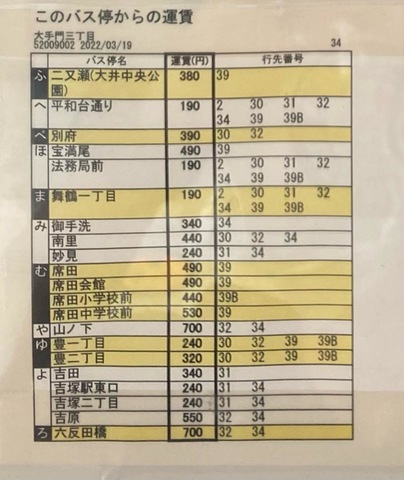 このバス停からの運賃
大手門三丁目
52009002 2022/03/19 34
バス停名 運賃(円) 行先番号
ふ 二又瀬(大井中央公園) 380 39
へ 平和台通り 190 2 30 31 32
34 39 39B
べ 別府 390 30 32
ほ 宝満尾 490 39
法務局前 190 2 30 31 32
34 39 39B
ま 舞鶴一丁目 190 2 30 31 32
34 39 39B
み 御手洗 340 34
南里 440 30 32 34
妙見 240 31 34
む 席田 490 39
席田会館 490 39
席田小学校前 440 39B
席田中学校前 530 39
や 山ノ下 700 32 34
ゆ 豊一丁目 240 30 32 39 39B
豊二丁目 320 30 32 39 39B
よ 吉田 340 31
吉塚駅東口 240 31 34
吉塚二丁目 240 31 34
吉原 550 32 34
ろ 六反田橋 700 32 34